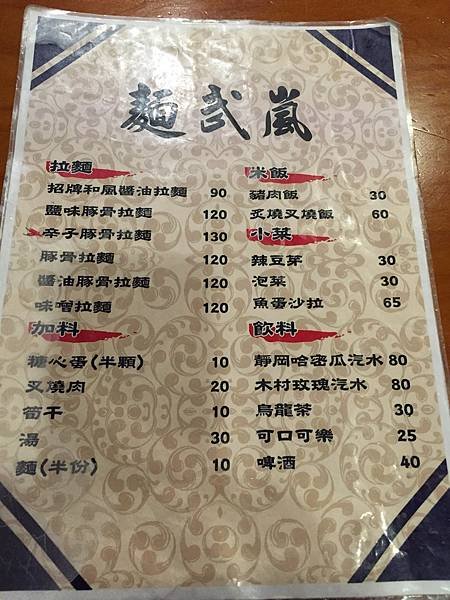 麵武嵐
拉麵
招牌和風醬油拉麵 90
鹽味豚骨拉麵 120
辛子豚骨拉麵 130
豚骨拉麵 120
醬油豚骨拉麵 120
味噌拉麵 120
加料
糖心蛋(半顆) 10
叉燒肉 20
筍干 10
湯 30
麵(半份) 10
米飯
豬肉飯 30
炙燒叉燒飯 60
小菜
辣豆芽 30
泡菜 30
魚蛋沙拉 65
飲料
靜岡哈密瓜汽水 80
木村玫瑰汽水 80
烏龍茶 30
可口可樂 25
啤酒 40